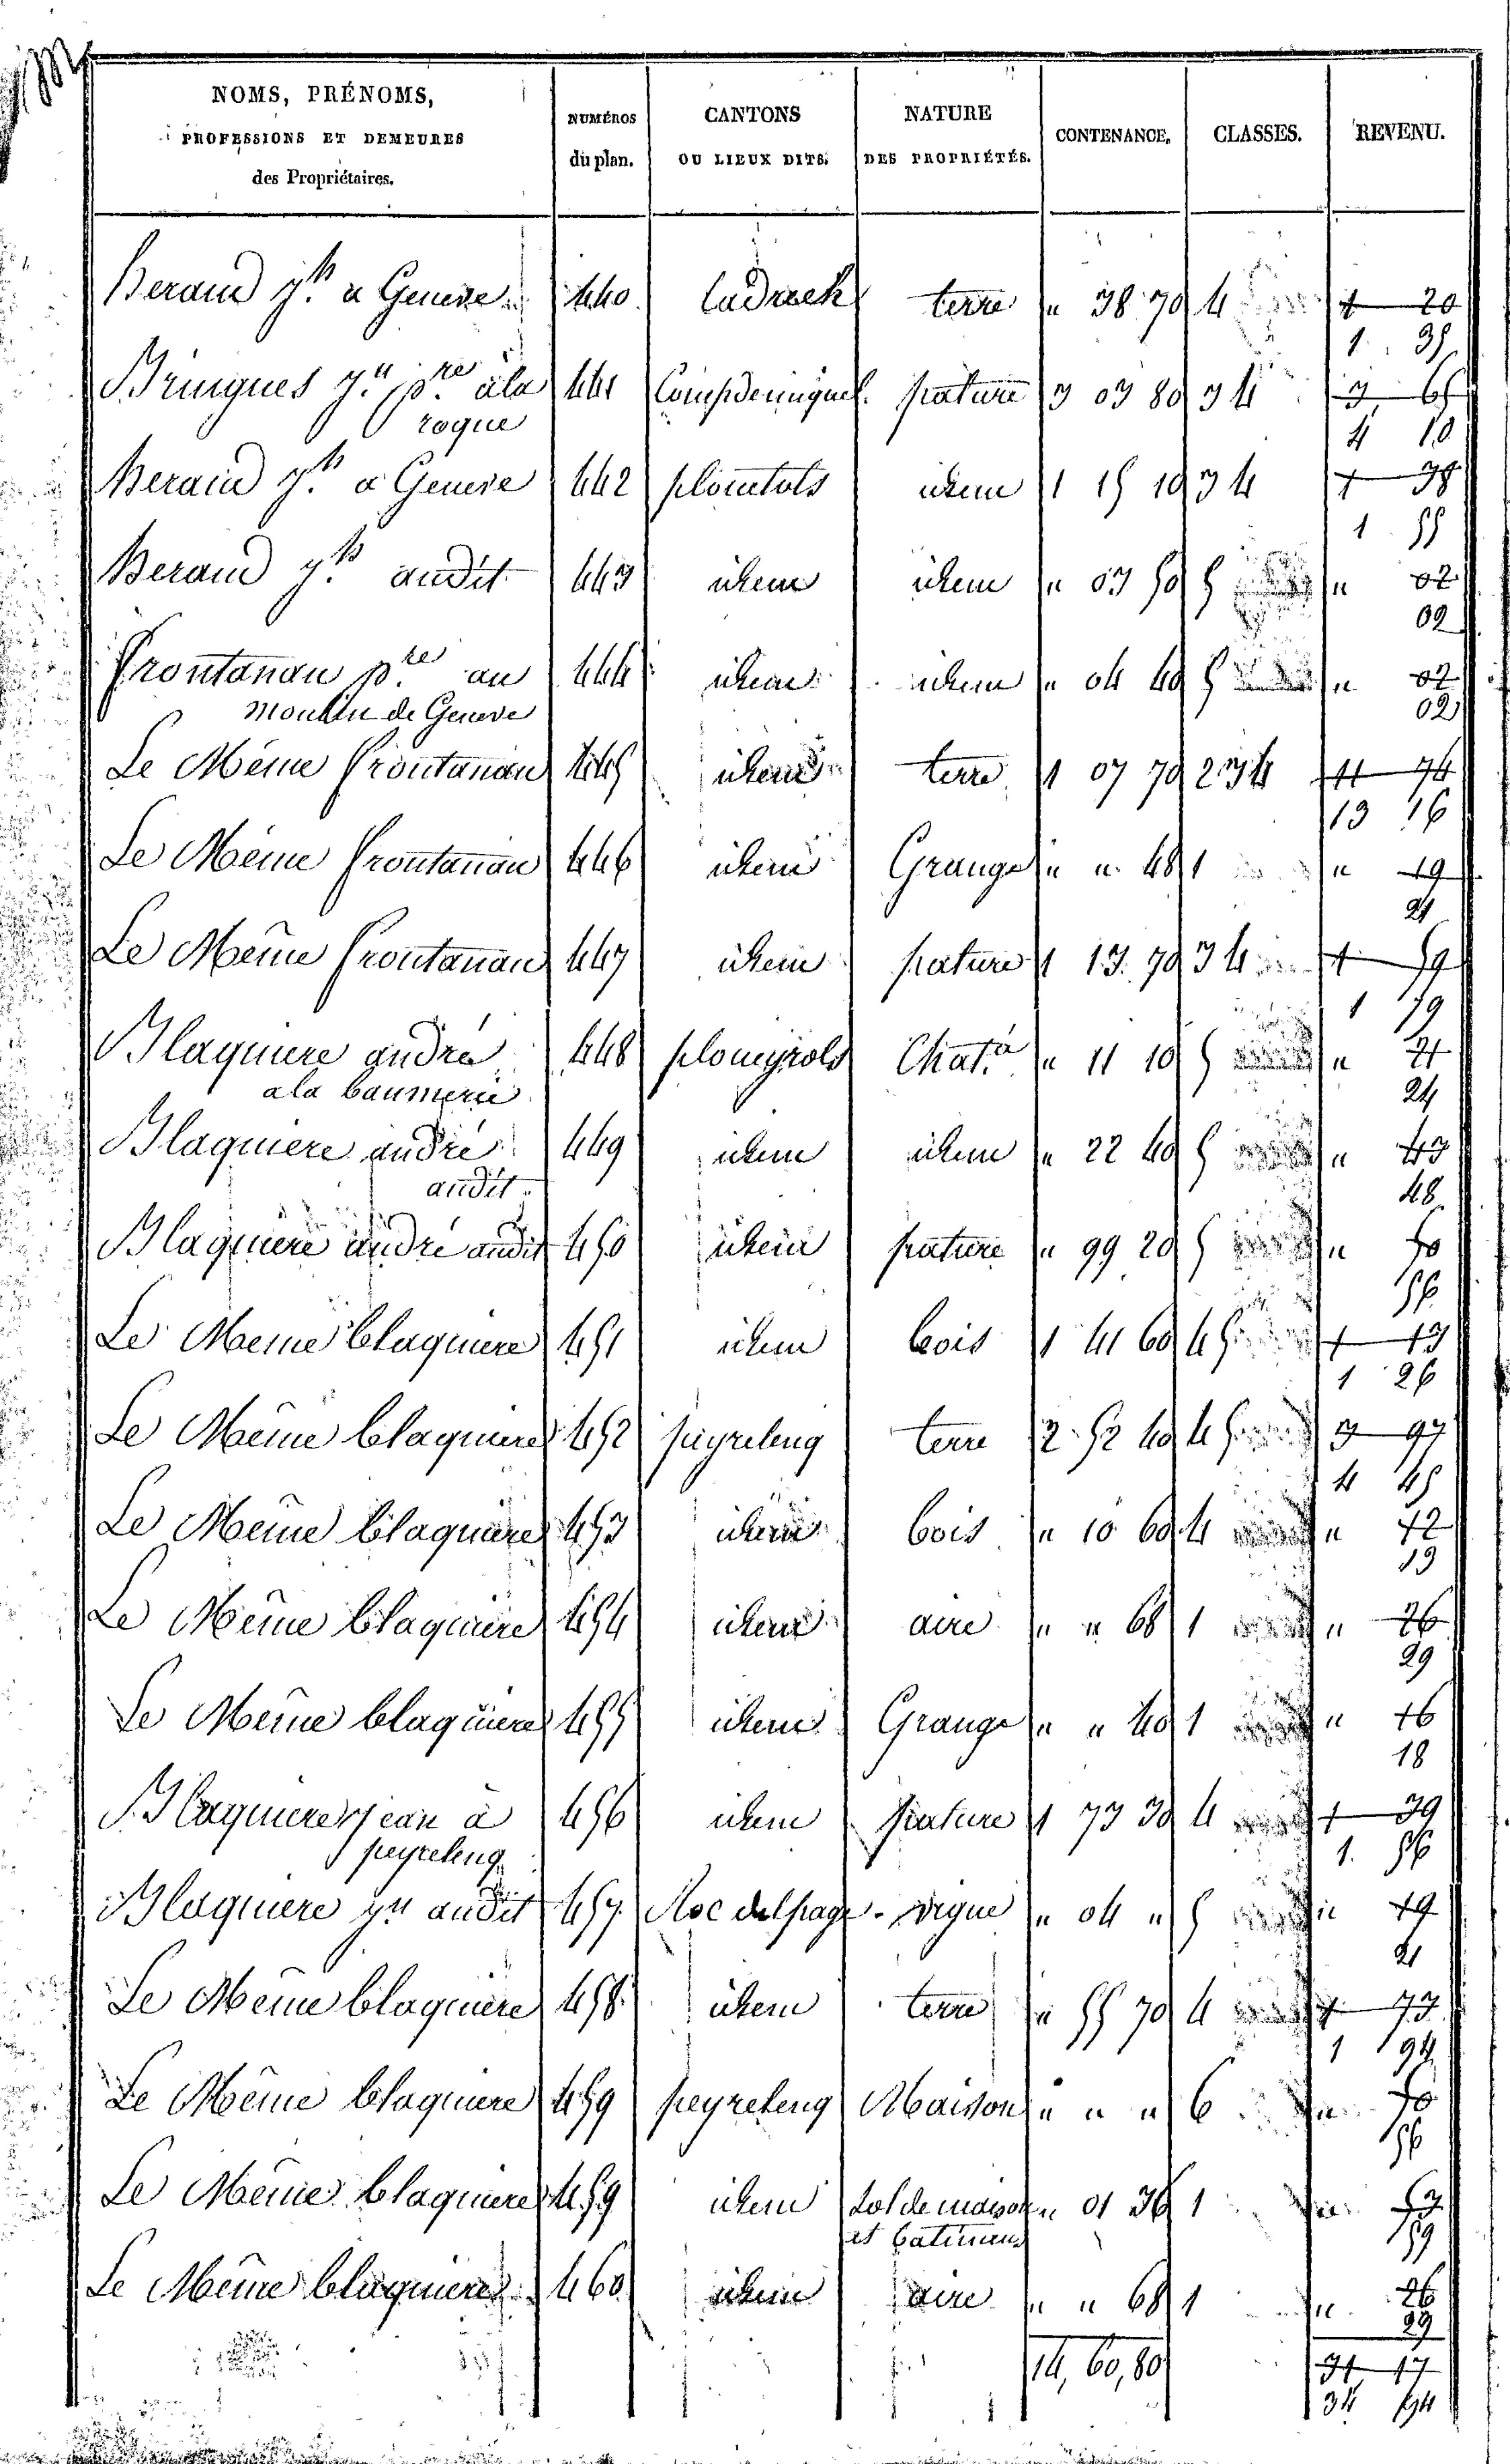 NOMS, PRÉNOMS, PROFESSIONS ET DEMEURES des Propriétaires. NUMÉROS du plan. CANTONS OU LIEUX DITS. NATURE DES PROPRIÉTÉS. CONTENANCE. CLASSES. REVENU.
Beraud a Geneve 440 terre " 38 70 4 1 20
1 35
Bringues à la 441 pature 3 03 80 3 4 3 65
roque 4 10
Beraud a Geneve 442 idem 1 15 10 3 4 1 38
1 55
Beraud audit 443 idem idem " 03 50 5 " 02
02
Frontanau p.re au 444 idem idem " 04 40 5 " 02
moulin de Geneve 02
Le Même Frontanau 445 idem terre 1 07 70 2 3 4 11 74
13 16
Le Même Frontanau 446 idem Grange " " 48 1 " 19
21
Le Même Frontanau 447 idem pature 1 13 70 3 4 1 59
1 79
Blaquiere andré 448 Chat. " 11 10 5 " 21
a la baumerie 24
Blaquiere andré 449 idem idem " 22 40 5 " 43
audit 48
Blaquiere andré audit 450 idem pature " 99 20 5 " 50
56
Le Même blaquiere 451 idem bois 1 41 60 4 5 1 13
1 26
Le Même blaquiere 452 peyreleng terre 2 52 40 4 5 3 97
4 45
Le Même blaquiere 453 idem bois " 10 60 4 " 12
13
Le Même blaquiere 454 idem aire " " 68 1 " 26
29
Le Même blaquiere 455 idem Grange " " 40 1 " 16
18
Blaquiere jean à 456 idem pature 1 73 30 4 1 39
peyreleng 1 56
Blaquiere jn audit 457 Roc del page vigne " 04 " 5 " 19
21
Le Même blaquiere 458 idem terre " 55 70 4 1 73
1 94
Le Même blaquiere 459 peyreleng Maison " " " 6 " 50
56
Le Même blaquiere 459 idem sol de maison " 01 36 1 " 53
et batiment 59
Le Même blaquiere 460 idem aire " " 68 1 " 26
29
14,60,80 31 17
34 94